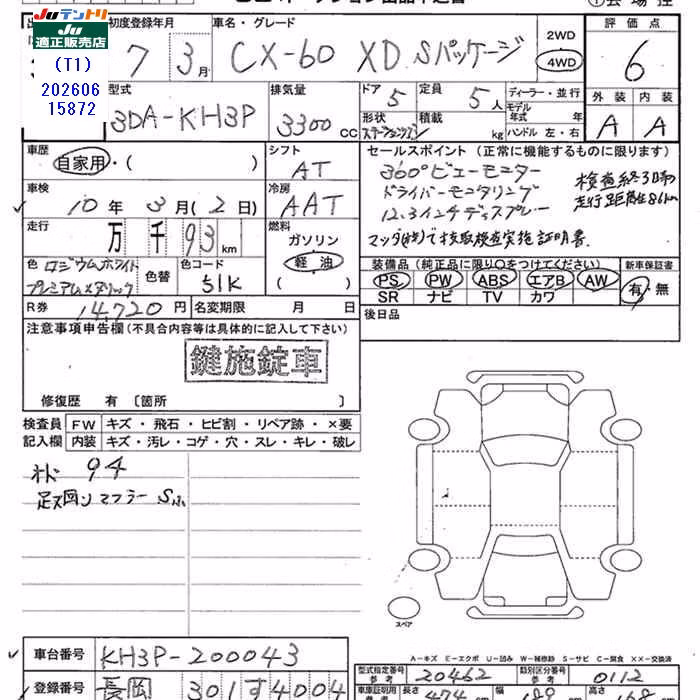 Juテントリ
Ju
適正販売店
(T1)
202606
15872
初度登録年月
車名・グレード
7 3月
CX-60 XD Sパッケージ
2WD
4WD
評価点
6
外装 内装
A A
型式
3DA-KH3P
排気量
3300 cc
ドア
5
定員
5人
形状
積載
kg
ディーラー・並行
モデル
年式 年
ハンドル 左・右
車歴
自家用・( )
シフト
AT
車検
10年3月(2日)
冷房
AAT
走行
万千93km
燃料
ガソリン
軽油
色 ロジウムホワイト
プレミアムメタリック
色替
色コード
51K
R券 14,720円
名変期限 月 日
セールスポイント (正常に機能するものに限ります)
360°ビューモニター
ドライバーモニタリング
12.3インチディスプレー
検査終了時
走行距離
装備品 (純正品に限り○をつけてください)
PS PW ABS エアB AW
SR ナビ TV カワ
新車保証書
有・無
後日品
注意事項申告欄 (不具合内容等は具体的に記入して下さい)
鍵施錠車
修復歴 有 [箇所 ]
検査員
記入欄
FW キズ・飛石・ヒビ割・リペア跡・×要
内装 キズ・汚レ・コゲ・穴・スレ・キレ・破レ
94
マフラー
スペア
A-キズ E-エクボ U-凹み W-補修跡 S-サビ C-腐食 XX-交換済
車台番号 KH3P-200043
登録番号 長岡 301す4004
型式指定番号
参考
20462
類別区分番号
参考
0112
長さ 474 cm 幅 189 高さ 168